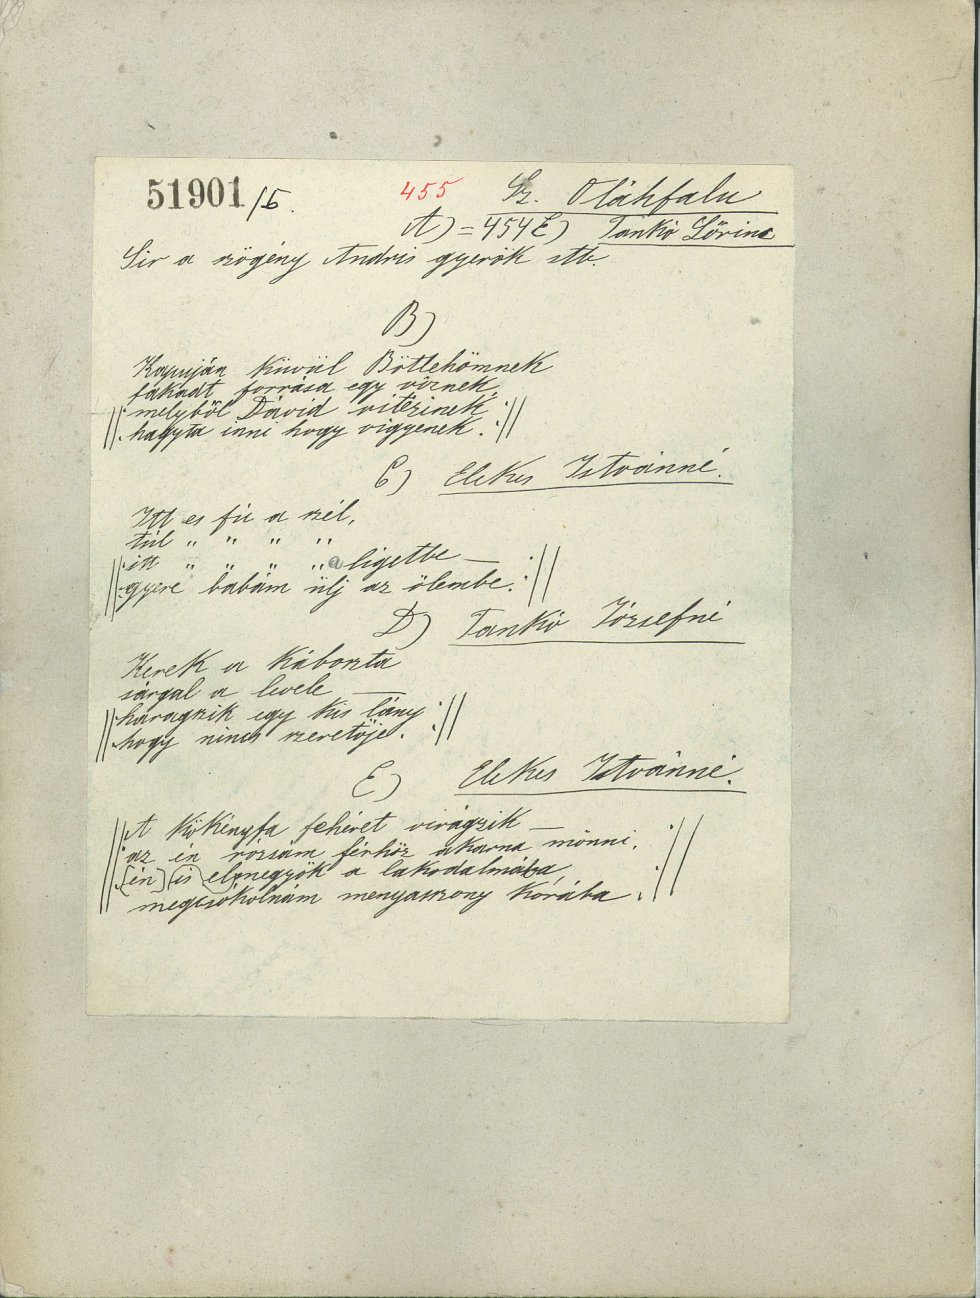 51901/6. 455 Sz. Oláhfalu
A) = 454 E) Tankó Lőrinc
Sir a szögény Andris gyerök stb.
B)
Kapuján küvül Böttehömnek
fakadt forrása egy viznek,
||: melyből Dávid vitézinek
hagyta inni hogy vigyenek. :||
C) Elekes Istvánné.
Itt es fú a szél,
túl " " " "
||: itt " " " " a ligetbe —
gyere babám ülj az ölembe. :||
D) Tankó Józsefné
Kerek a káboszta
sárgal a levele —
||: haragszik egy kis lány
hogy nincs szeretője. :||
E) Elekes Istvánné.
||: A kökényfa fehéret virágzik —
az én rózsám férhöz akarna mönni. :||
||: [én] (is) elmegyök a lakodalmába,
megcsókolnám menyasszony korába. :||